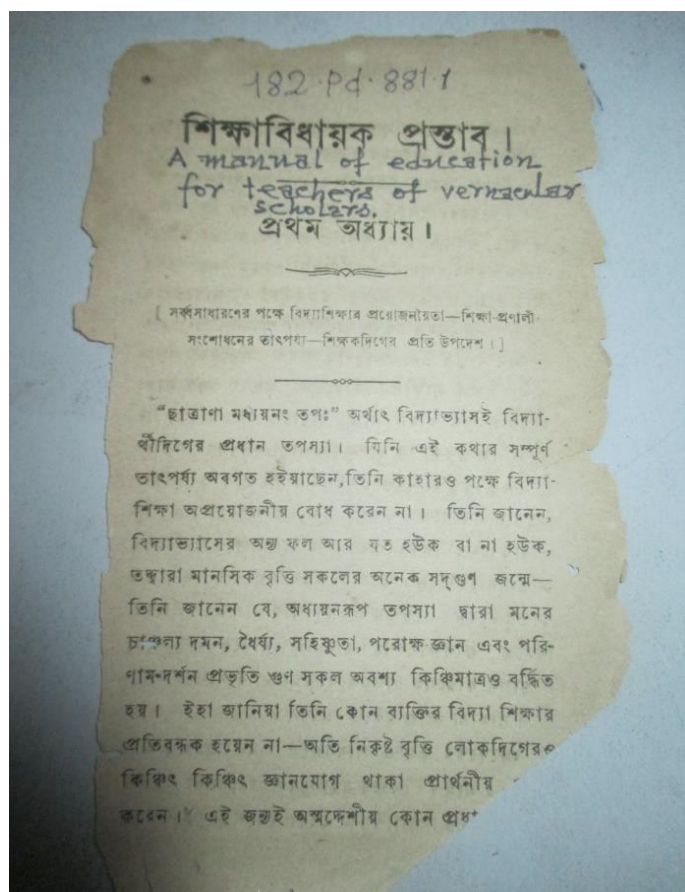 182·Pd·881·1
শিক্ষাবিধায়ক প্রস্তাব।
A manual of education
for teachers of vernacular
scholars.
প্রথম অধ্যায়।
[ সর্ব্বসাধারণের পক্ষে বিদ্যাশিক্ষার প্রয়োজনীয়তা—শিক্ষা-প্রণালী
সংশোধনের তাৎপর্য্য—শিক্ষকদিগের প্রতি উপদেশ। ]
“ছাত্রাণা মধ্যয়নং তপঃ” অর্থাৎ বিদ্যাভ্যাসই বিদ্যা-
র্থীদিগের প্রধান তপস্যা। যিনি এই কথার সম্পূর্ণ
তাৎপর্য্য অবগত হইয়াছেন, তিনি কাহারও পক্ষে বিদ্যা-
শিক্ষা অপ্রয়োজনীয় বোধ করেন না। তিনি জানেন,
বিদ্যাভ্যাসের অন্য ফল আর যত হউক বা না হউক,
তদ্দ্বারা মানসিক বৃত্তি সকলের অনেক সদ্গুণ জন্মে—
তিনি জানেন যে, অধ্যয়নরূপ তপস্যা দ্বারা মনের
চাঞ্চল্য দমন, ধৈর্য্য, সহিষ্ণুতা, পরোক্ষ জ্ঞান এবং পরি-
ণাম-দর্শন প্রভৃতি গুণ সকল অবশ্য কিঞ্চিমাত্রও বর্দ্ধিত
হয়। ইহা জানিয়া তিনি কোন ব্যক্তির বিদ্যা শিক্ষার
প্রতিবন্ধক হয়েন না—অতি নিকৃষ্ট বৃত্তি লোকদিগেরও
কিঞ্চিৎ কিঞ্চিৎ জ্ঞানযোগ থাকা প্রার্থনীয়
করেন। এই জন্যই অস্মদ্দেশীয় কোন